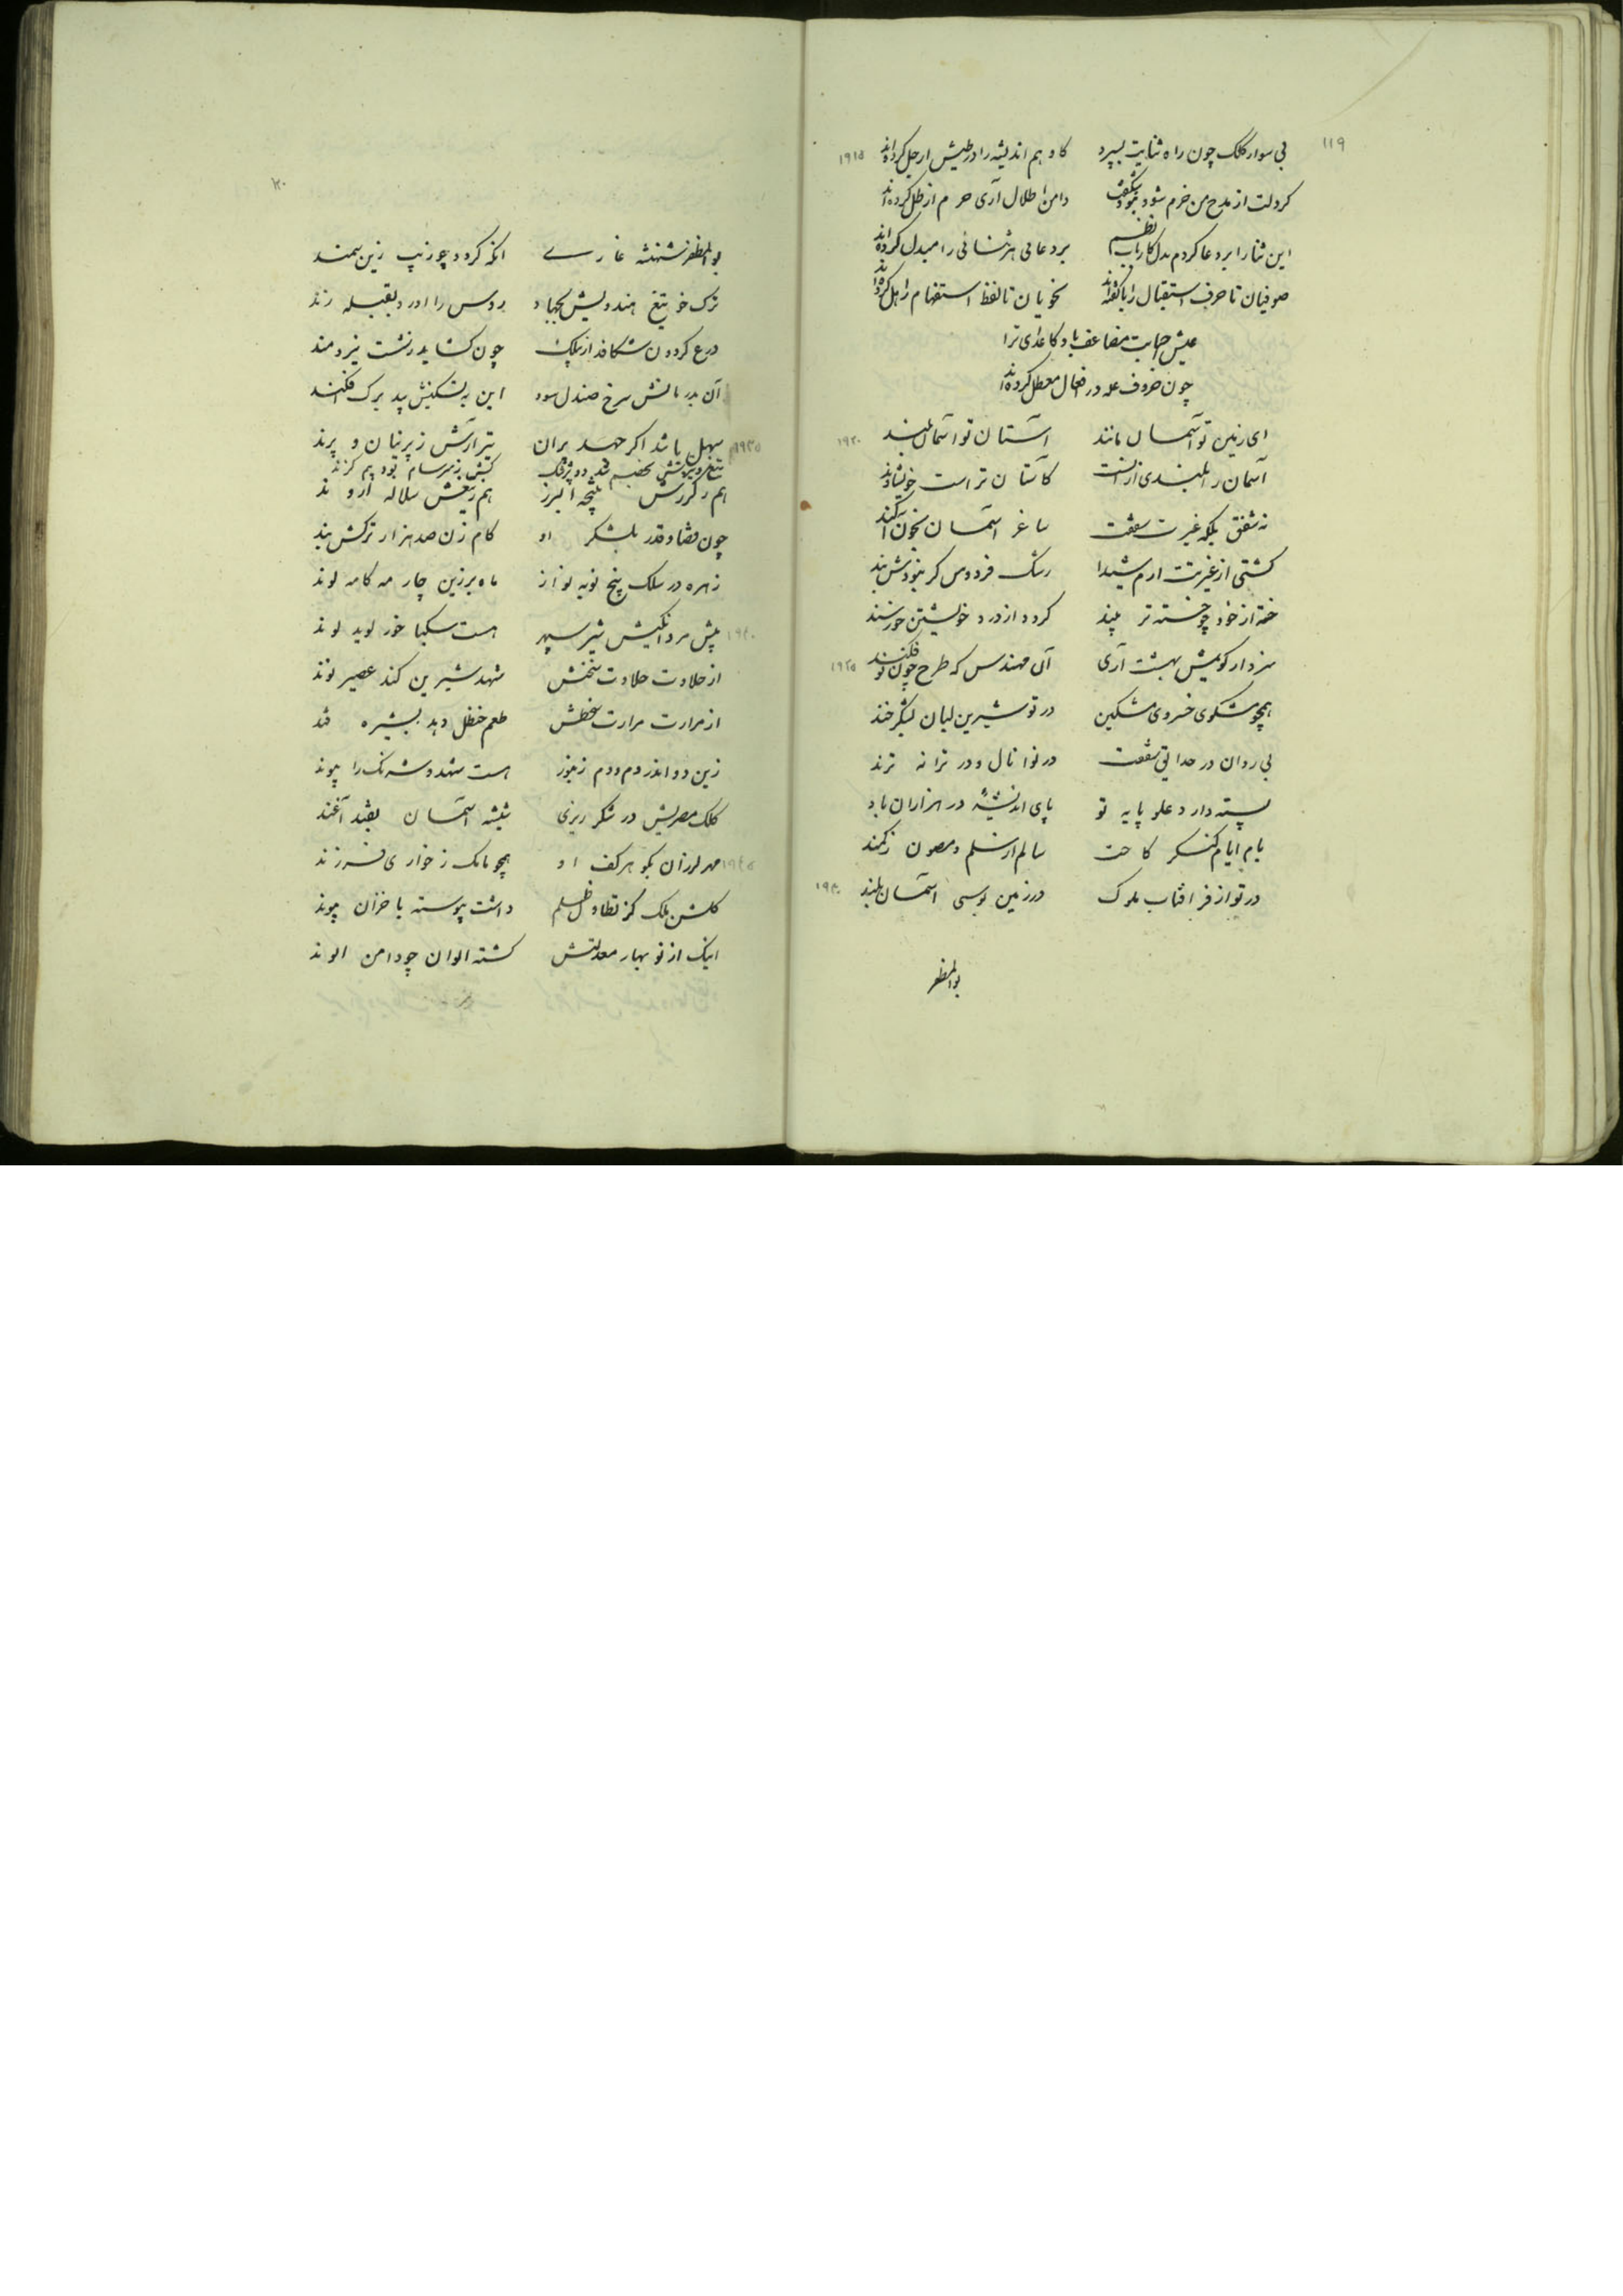 ۱۱۹
بی سوار کلک چون راه ثنایت بسپرد کاوهم اندیشه را در طیش ارجل کرده‌اند ۱۹۱۵
کر دلت از مدح من خرم شود نبود شکفت دامن اطلال آری خرم از طل کرده‌اند
این ثنا را بر دعا کردم بدل کارباب نظم بر دعا هر ثنائی را مبدل کرده‌اند
صوفیان تا حرف استقبال را با گفته‌اند نحویان تا لفظ استفهام را هل کرده‌اند
عیش احبابت مضاعف باد و کاعدای ترا
چون حروف عله در افعال معطل کرده‌اند
ای زمین تو آسمان مانند آستان تو آسمان بلند ۱۹۲۰
آسمان را بلندی از آنست کآستان تر است خویشاوند
نه شفق بلکه غیرت سقفت ساغر آسمان بخون آکند
کشتی از غیرتت ارم شیدا رشک فردوس کر نبودش بند
خسته از خود چو خسته تر بیند کردد از درد خویشتن خورسند
سزد ار کویمش بهشت آری آن مهندس که طرح چون تو فکند ۱۹۲۵
همچو مشکوی خسروی مشکین در تو شیرین لبان بشکرخند
بی روان در حدایق سقفت در نوا نال و در ترانه ترند
پسته دارد علو پایه تو پای اندیشه در هزاران باد
بام ایام کنگر کاخت سالم از سلم و مصون ز کمند
در تو از فر آفتاب ملوک در زمین بوسی آسمان بلند ۱۹۳۰
بوالمظفر
بوالمظفر شهنشه غازی آنکه کردد چو زیب زین سمند
ترک خو تیغ هندویش بجهاد روس را آورد بقبله زند
درع کردون شکافد از بیلک چون کشاید ز شست نیرومند
آن بدرمانش سرخ صندل سود این به تسکینش بید برک افکند
سهل باشد اکر جهد بران تیر آرش ز پرنیان و پرند ۱۹۳۵
هم ز کرزش نتیجه البرز هم ز تیغش سلاله اروند
چون قضا و قدر بلشکر او کام زن صد هزار ترکش بند
زهره در سلک پنج نوبه نواز ماه برزین چار مه کامه لوند
پیش مرد افکنیش شیر سپهر هست سکبا خور لوید لوند ۱۹۴۰
از حلاوت حلاوت سخنش شهد شیرین کند عصیر لوند
از مرارت مرارت سخطش طعم حنظل دهد بشیره قند
زین دو اندر دم و دم زنبور هست شهد و شرنک را پیوند
کلک مصریش در شکر ریزی شیشه آسمان بقند آغند
مهر لرزان بکوهر کف او همچو مامک ز خواری فرزند ۱۹۴۵
کلشن ملک کز تطاول ظلم داشت پیوسته با خزان پیوند
اینک از نوبهار معدلتش کشته الوان چو دامن الوند